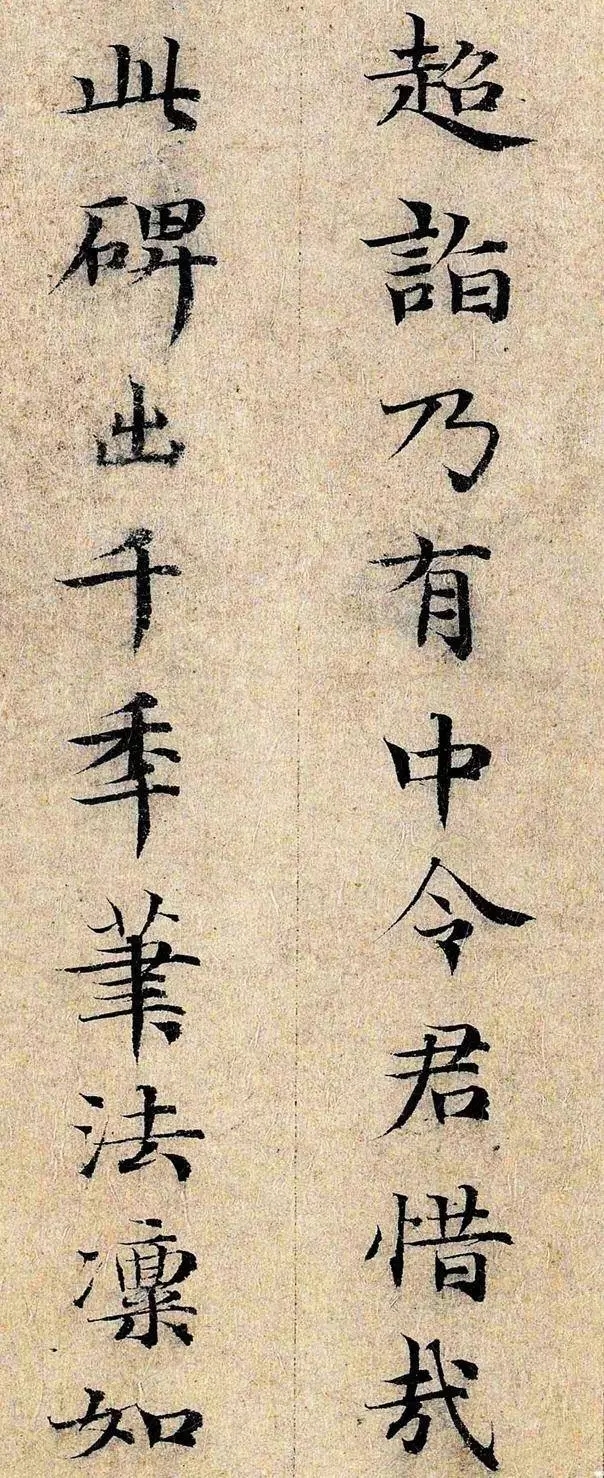 超詣乃有中令君惜哉
此碑出千秊筆法凛如